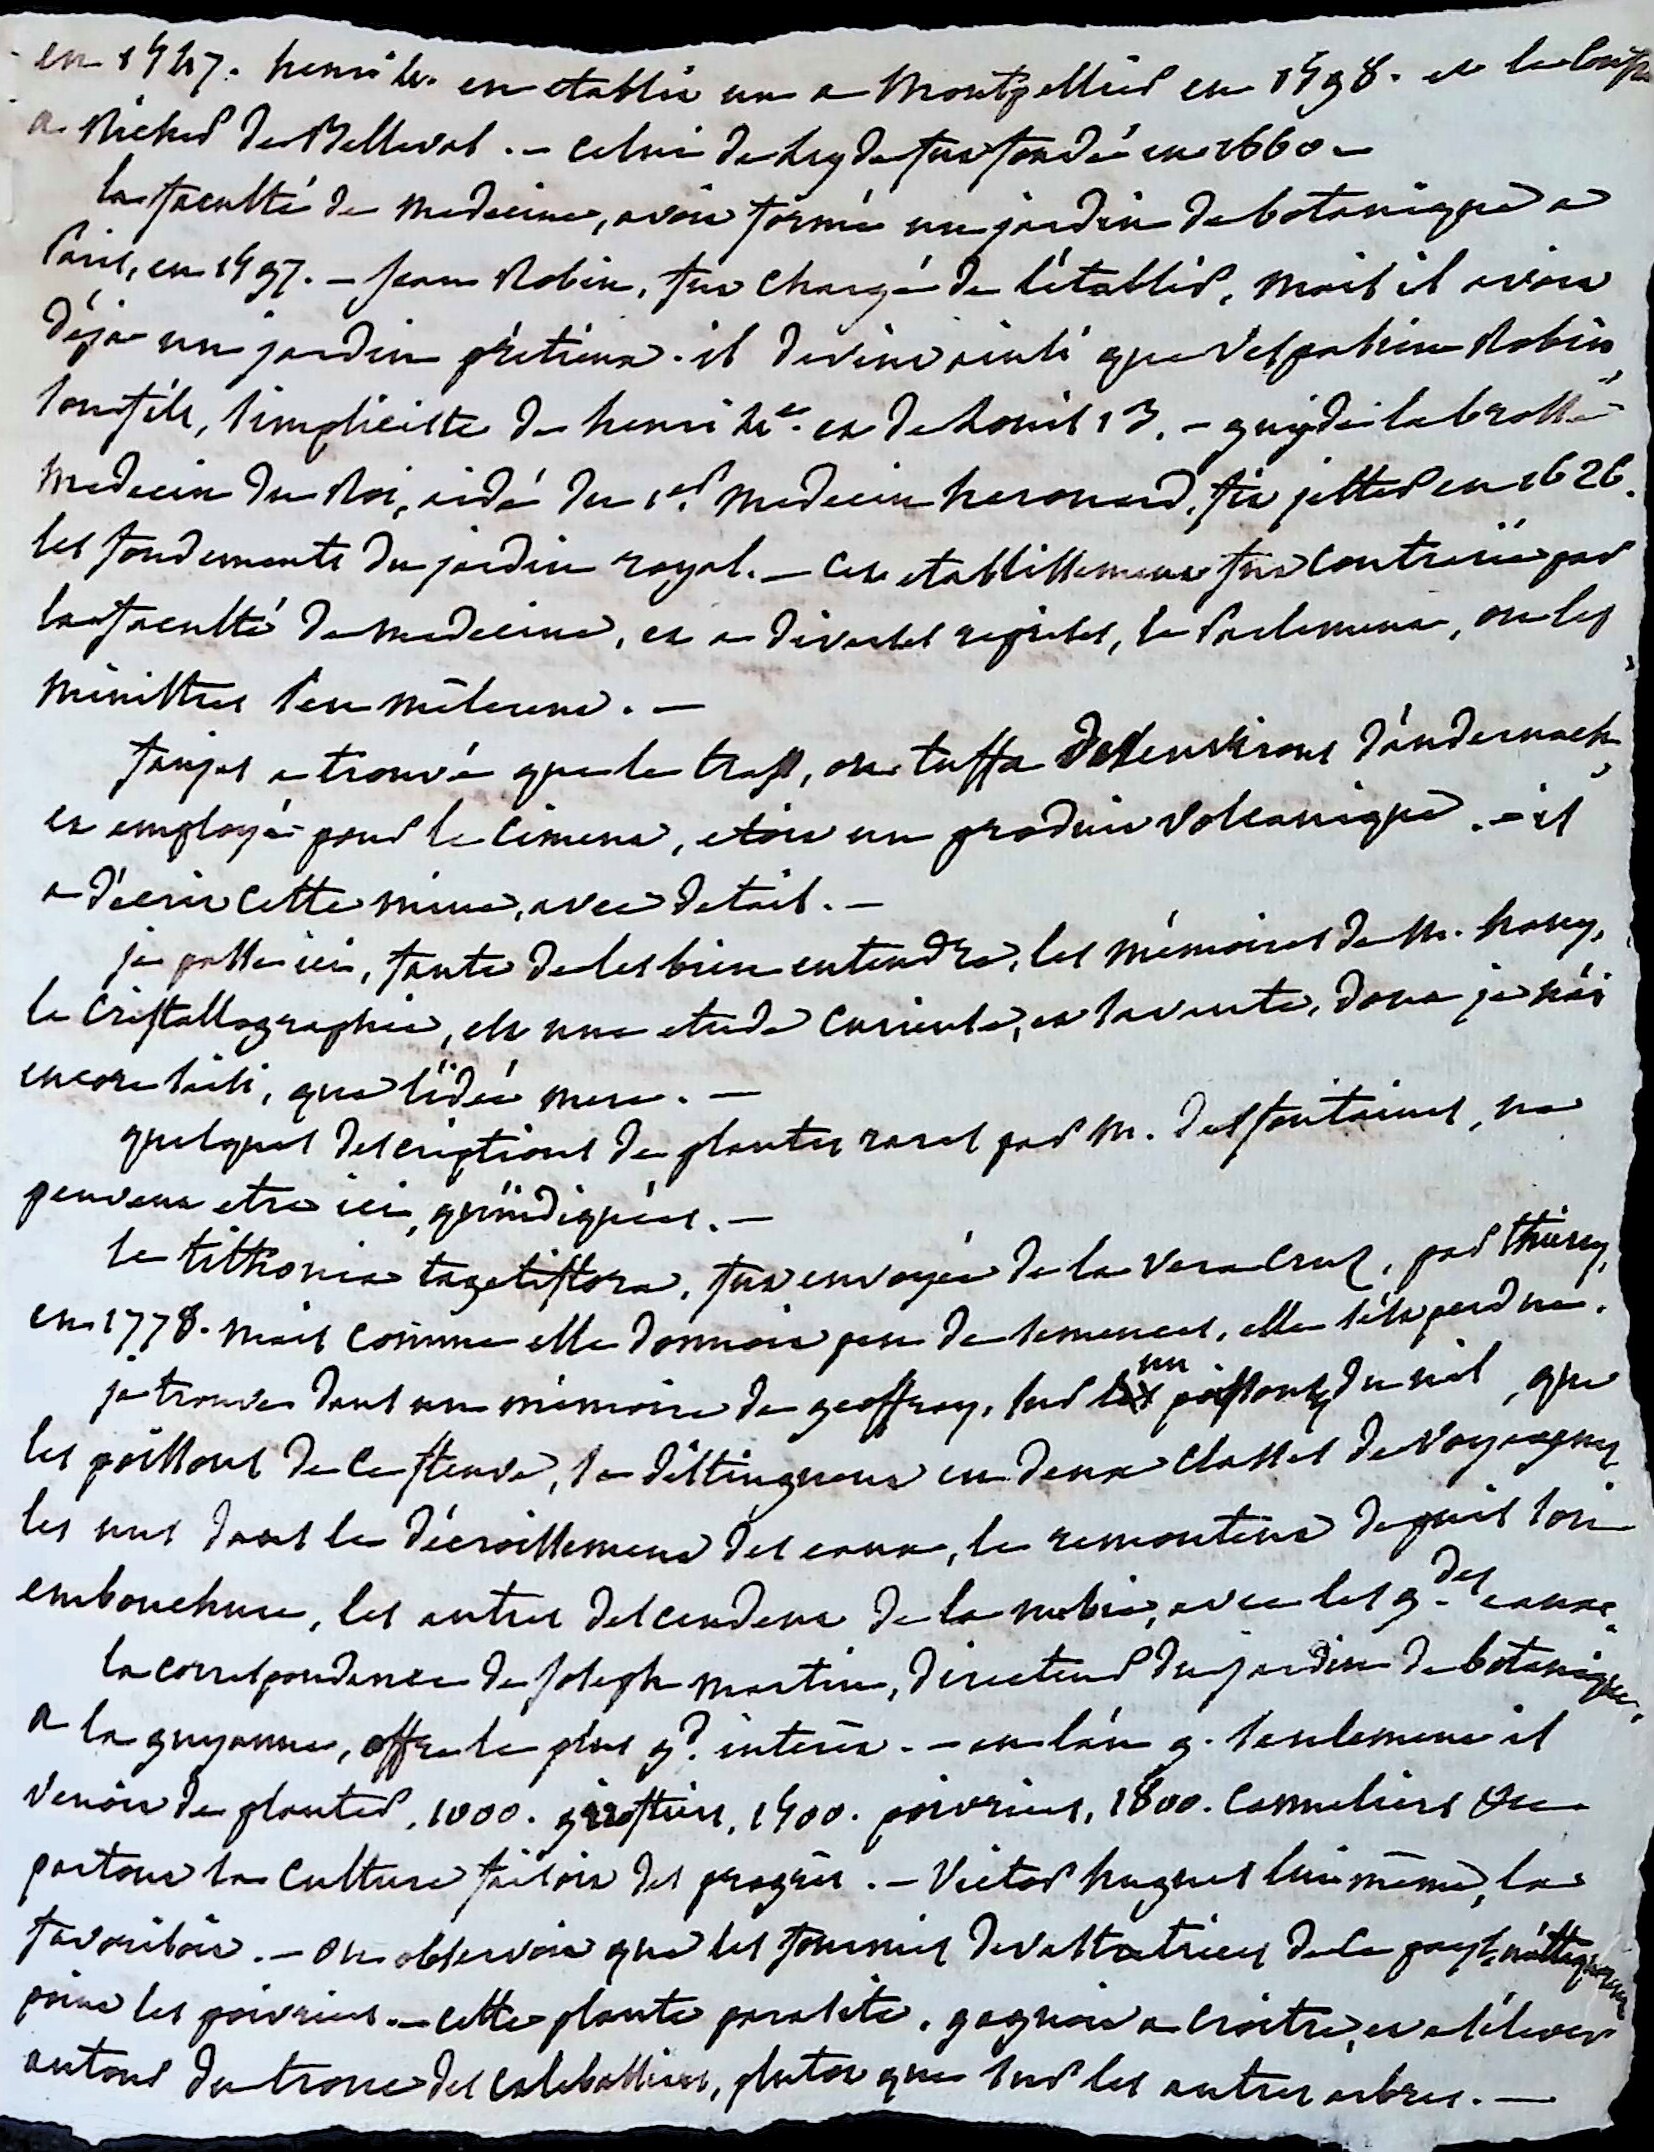 en 1547. henri 4. en etablit un a Montpellier en 1598. et le confia
a Richer de Belleval. — celui de Leyde fut fondé en 1660 —
la faculté de medecine, avoit formé un jardin de botanique a
Paris, en 1597. — Jean Robin, fut chargé de l'établir, mais il avoit
déja un jardin prétieux. il devint ainsi que Vespasien Robin,
son fils, simpliciste de henri 4. et de Louis 13. — guy de la brosse
medecin du Roi, aidé du 1er. medecin herouard, fit jetter en 1626.
les fondements du jardin royal. — cet etablissement fut contrarié par
la faculté de medecine, et a diverses reprises, le Parlement, ou les
ministres s'en mêlerent. —
faujas a trouvé que le trass, ou tuffa des environs d'andernach,
et employé pour le ciment, etoit un produit volcanique. — il
a décrit cette mine, avec detail. —
je passe ici, faute de les bien entendre, les mémoires de M. hauy,
la cristallographie, est une etude curieuse, et savante, dont je n'ai
encore saisi, que l'idée mere. —
quelques descriptions de plantes rares par M. desfontaines, ne
peuvent etre ici, qu'indiquées. —
le tithonia tagetiflora, fut envoyé de la vera cruz, par thiery,
en 1778. mais comme elle donnoit peu de semences, elle s'est perdue.
je trouve dans un mémoire de geoffroy, sur un poisson du nil, que
les poissons de ce fleuve, se distinguent en deux classes de voyageurs,
les uns dans le décroissement des eaux, le remontent depuis son
embouchure, les autres descendent de la nubie, avec les g.des eaux.
la correspondance de Joseph martin, directeur du jardin de botanique,
a la guyanne, offre le plus g.d intérêt. — en l'an 9. seulement il
venoit de planter, 1000. girofliers, 1500. poivriers, 1800. canneliers &c
partout la culture faisoit des progrès. — Victor hugues lui même, la
favorisoit. — on observoit que les fourmis devastatrices de ce pays, n'attaquoient
point les poivriers. — cette plante parasite, gagnoit a croitre, et a s'élever
autour du tronc des calebassiers, plutot que sur les autres arbres. —